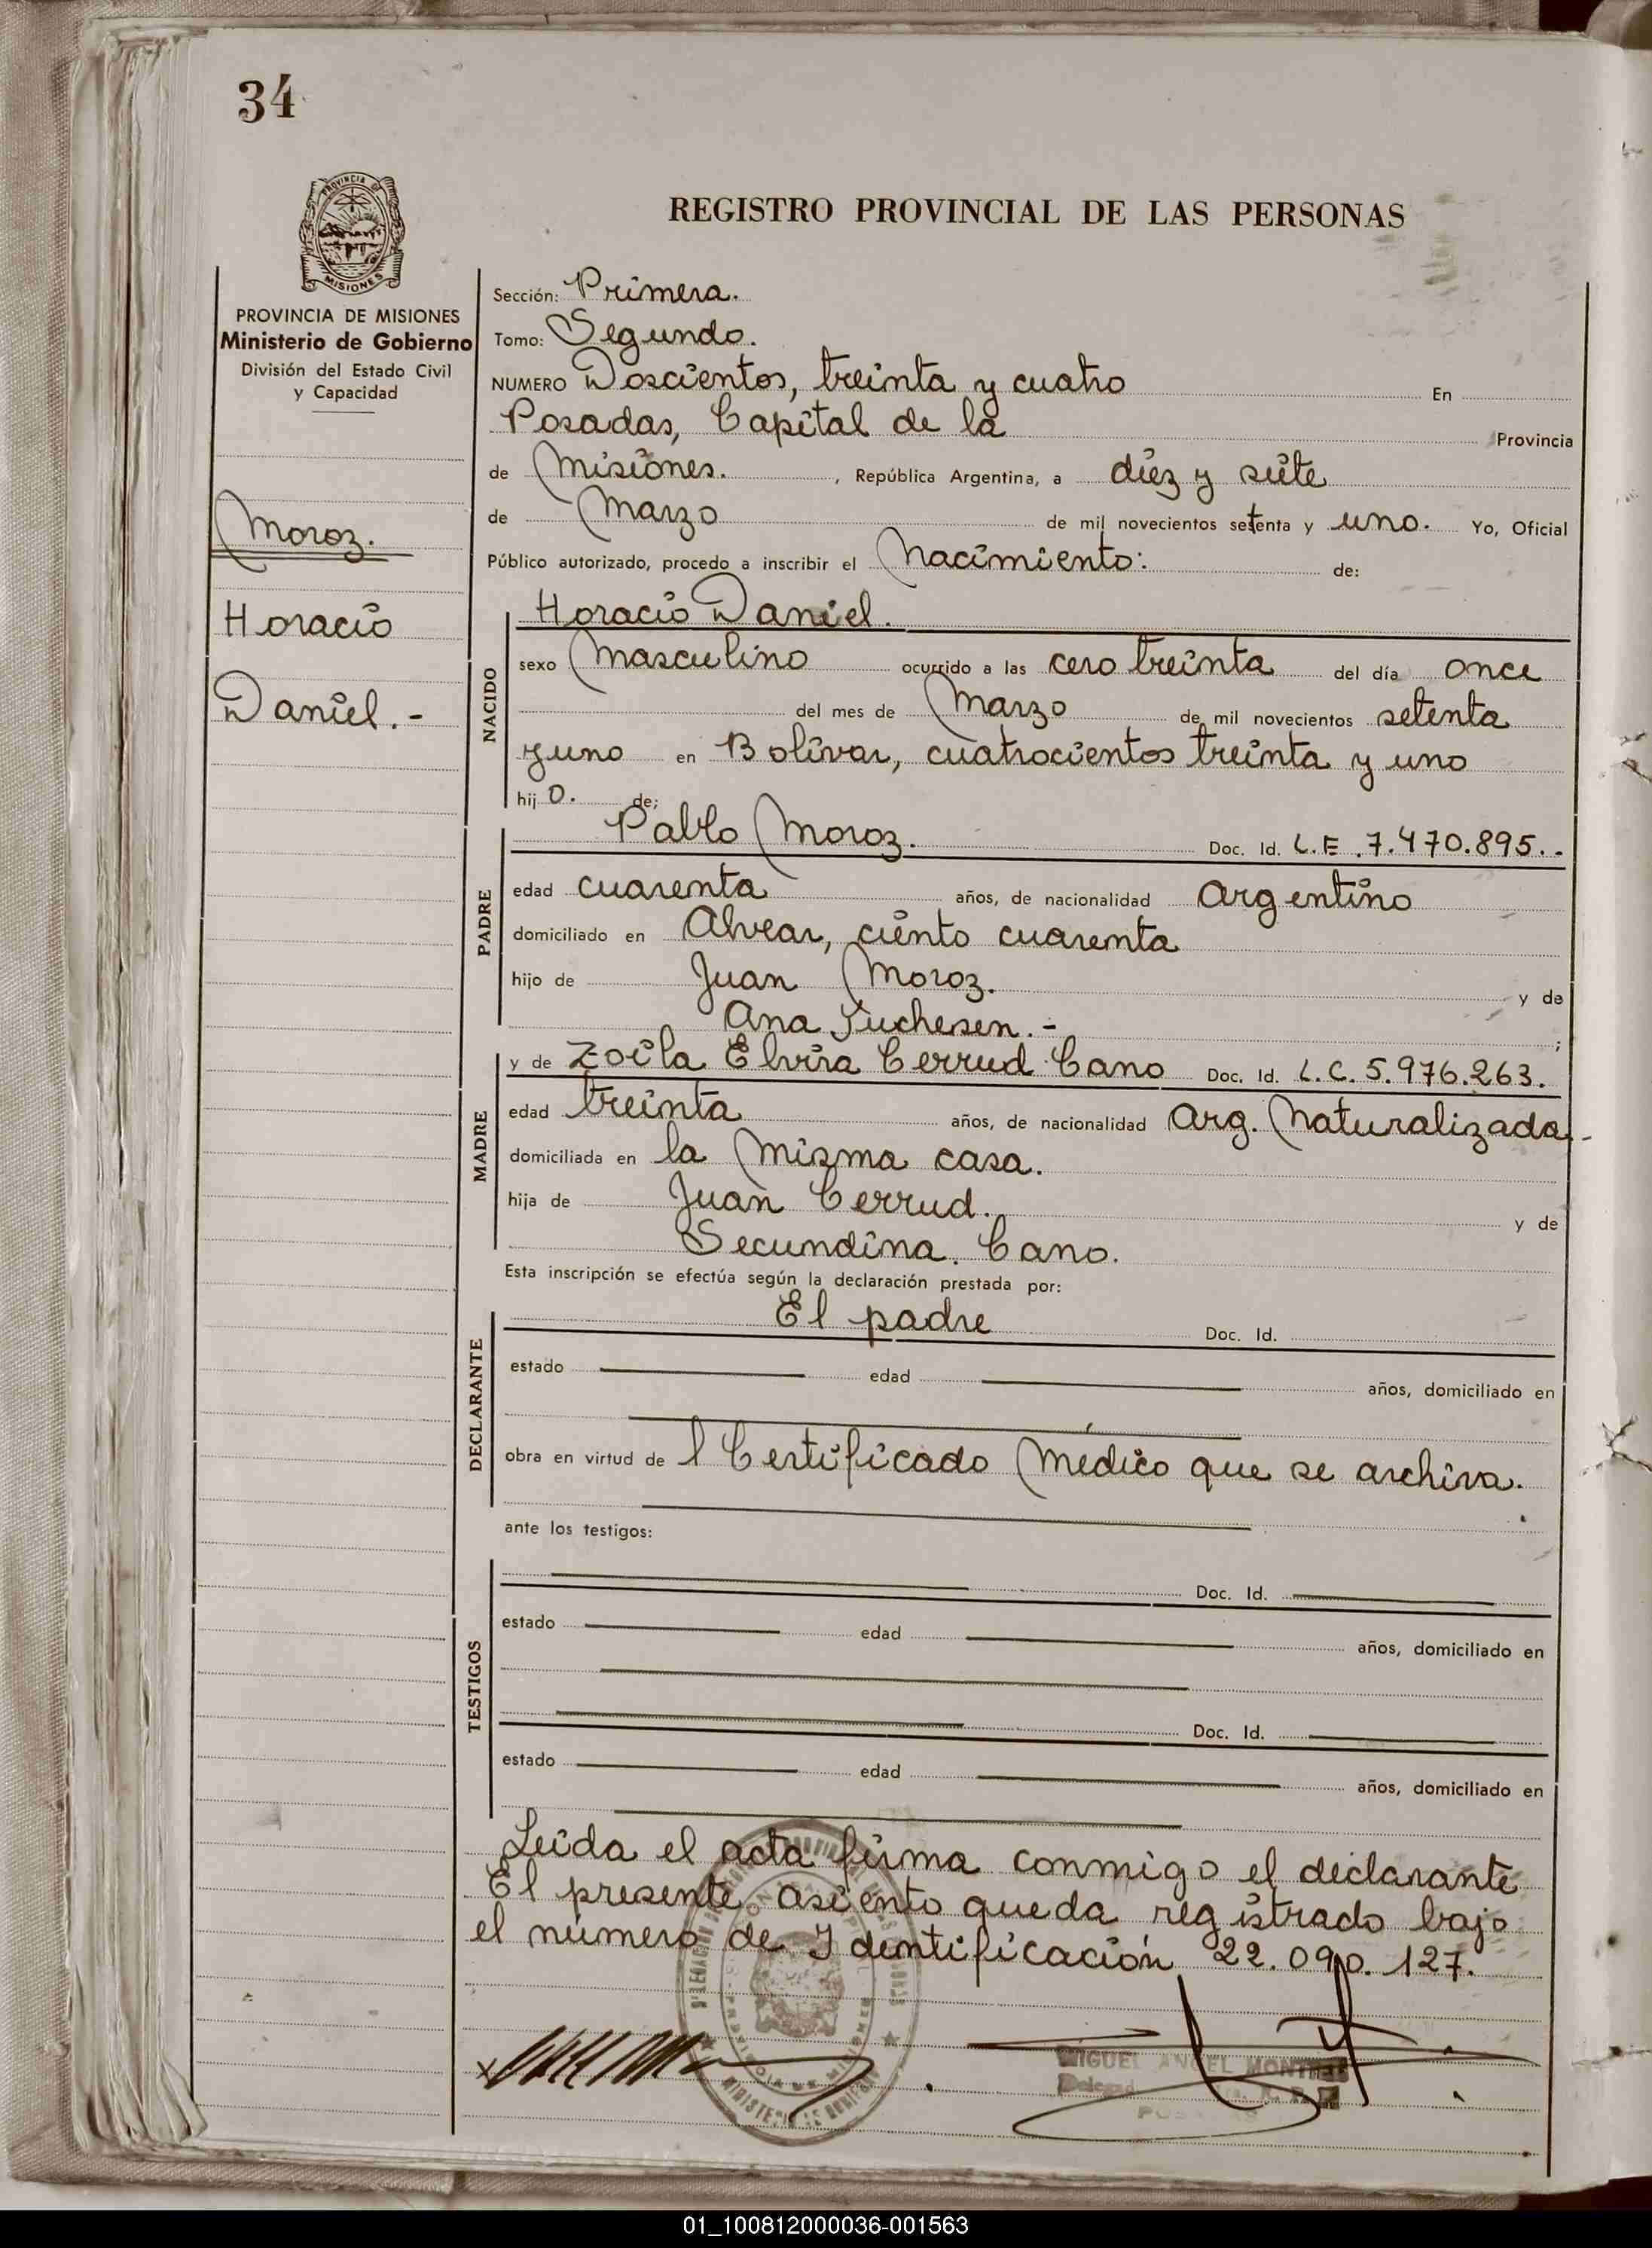 34
PROVINCIA DE
MISIONES
REGISTRO PROVINCIAL DE LAS PERSONAS
PROVINCIA DE MISIONES
Ministerio de Gobierno
División del Estado Civil
y Capacidad
Moroz.
Horacio
Daniel.-
Sección: Primera.
Tomo: Segundo.
NUMERO Doscientos, treinta y cuatro En
Posadas, Capital de la Provincia
de Misiones. , República Argentina, a diez y siete
de Marzo de mil novecientos setenta y uno. Yo, Oficial
Público autorizado, procedo a inscribir el Nacimiento: de:
NACIDO
Horacio Daniel.
sexo Masculino ocurrido a las cero treinta del día once
del mes de Marzo de mil novecientos setenta
y uno en Bolívar, cuatrocientos treinta y uno
hij o. de:
PADRE
Pablo Moroz. Doc. Id. L.E. 7.470.895.-
edad cuarenta años, de nacionalidad Argentino
domiciliado en Alvear, ciento cuarenta
hijo de Juan Moroz. y de
Ana Luchesen.- ;
MADRE
y de Zoila Elvira Cerrud Cano Doc. Id. L.C. 5.976.263.
edad treinta años, de nacionalidad Arg. Naturalizada.-
domiciliada en la misma casa.
hija de Juan Cerrud. y de
Secundina Cano.
Esta inscripción se efectúa según la declaración prestada por:
DECLARANTE
El padre Doc. Id.
estado edad años, domiciliado en
obra en virtud de l Certificado Médico que se archiva.
ante los testigos:
TESTIGOS
Doc. Id.
estado edad años, domiciliado en
Doc. Id.
estado edad años, domiciliado en
Leida el acta firma conmigo el declarante
El presente asiento queda registrado bajo
el número de Identificación 22.090.127.
MIGUEL ANGEL
POSADAS
01_100812000036-001563